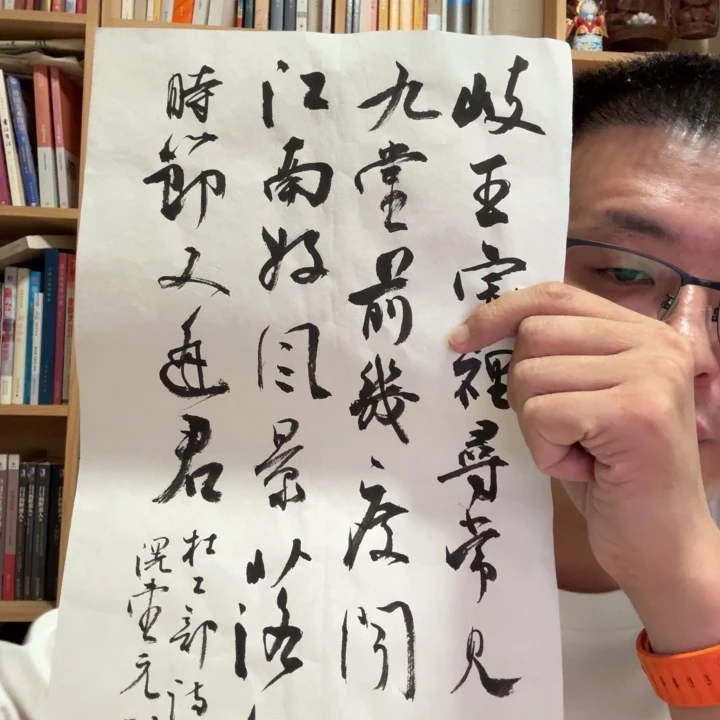 岐王宅裡尋常見
九堂前幾度聞
江南好風景落
時節又逢君
杜工部詩
滉堂元